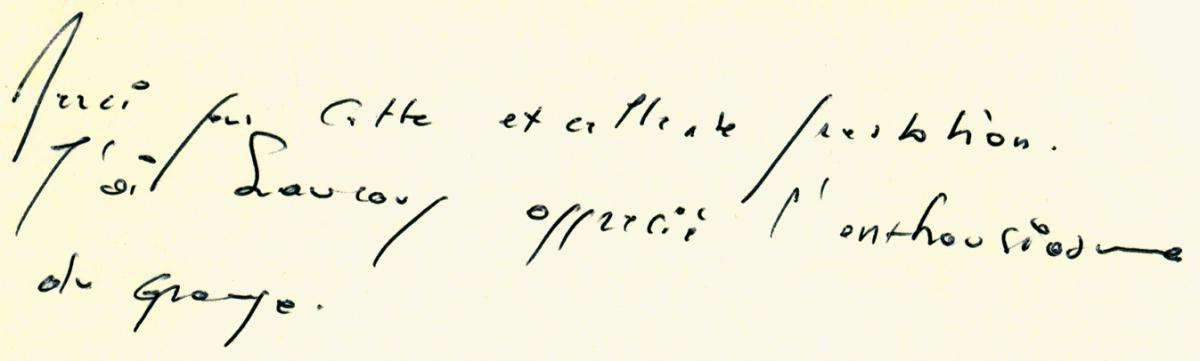 Merci pour cette excellente prestation.
J'ai beaucoup apprécié l'enthousiasme
du groupe.